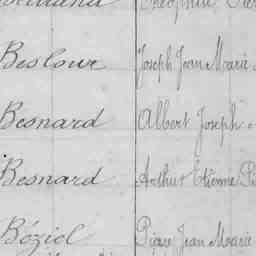 Beslour Joseph Jean Marie
Besnard Albert Joseph
Besnard Arthur Etienne
Béziel Pierre Jean Marie